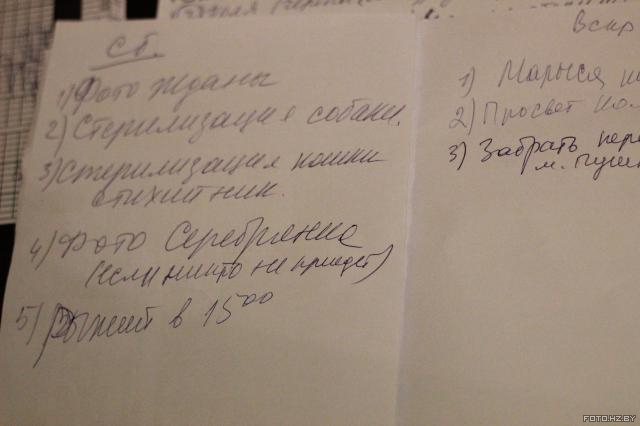 Сб.
1) Фото Жданы
2) Стерилизация собаки.
3) стерилизация кошки
4) Фото Серебрянка
(если никто не приедет)
5) Рыжий в 15⁰⁰
Вскр
1) Марыся
2) Просвет
3) Забрать пере
м. Пуш
FOTO.HZ.BY